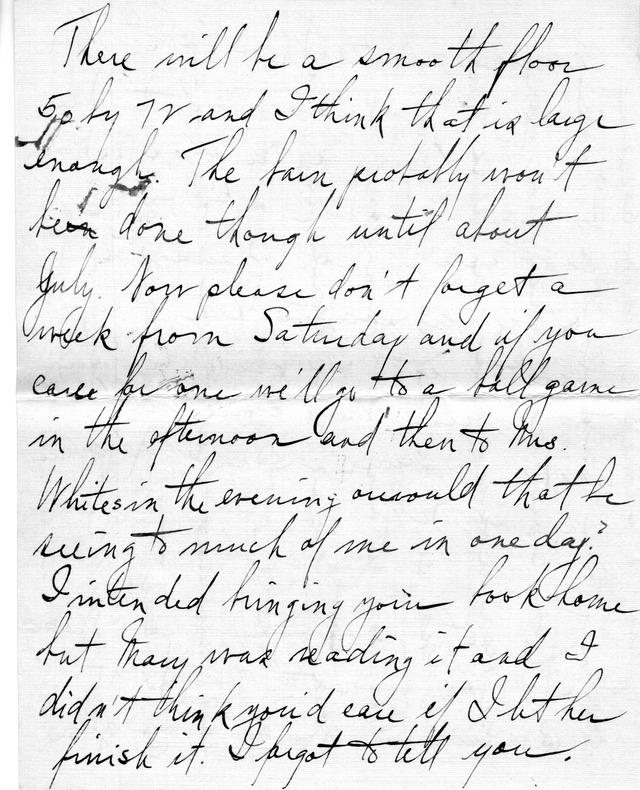 There will be a smooth floor
50 by 72 and I think that is large
enough. The barn probably won't
been done though until about
July. Now please don't forget a
week from Saturday and if you
care for one we'll go to a ball game
in the afternoon and then to Mrs.
Whites in the evening or would that be
seeing to much of me in one day?
I intended bringing your book home
but Mary was reading it and I
didn't think you'd care if I let her
finish it. I forgot to tell you.